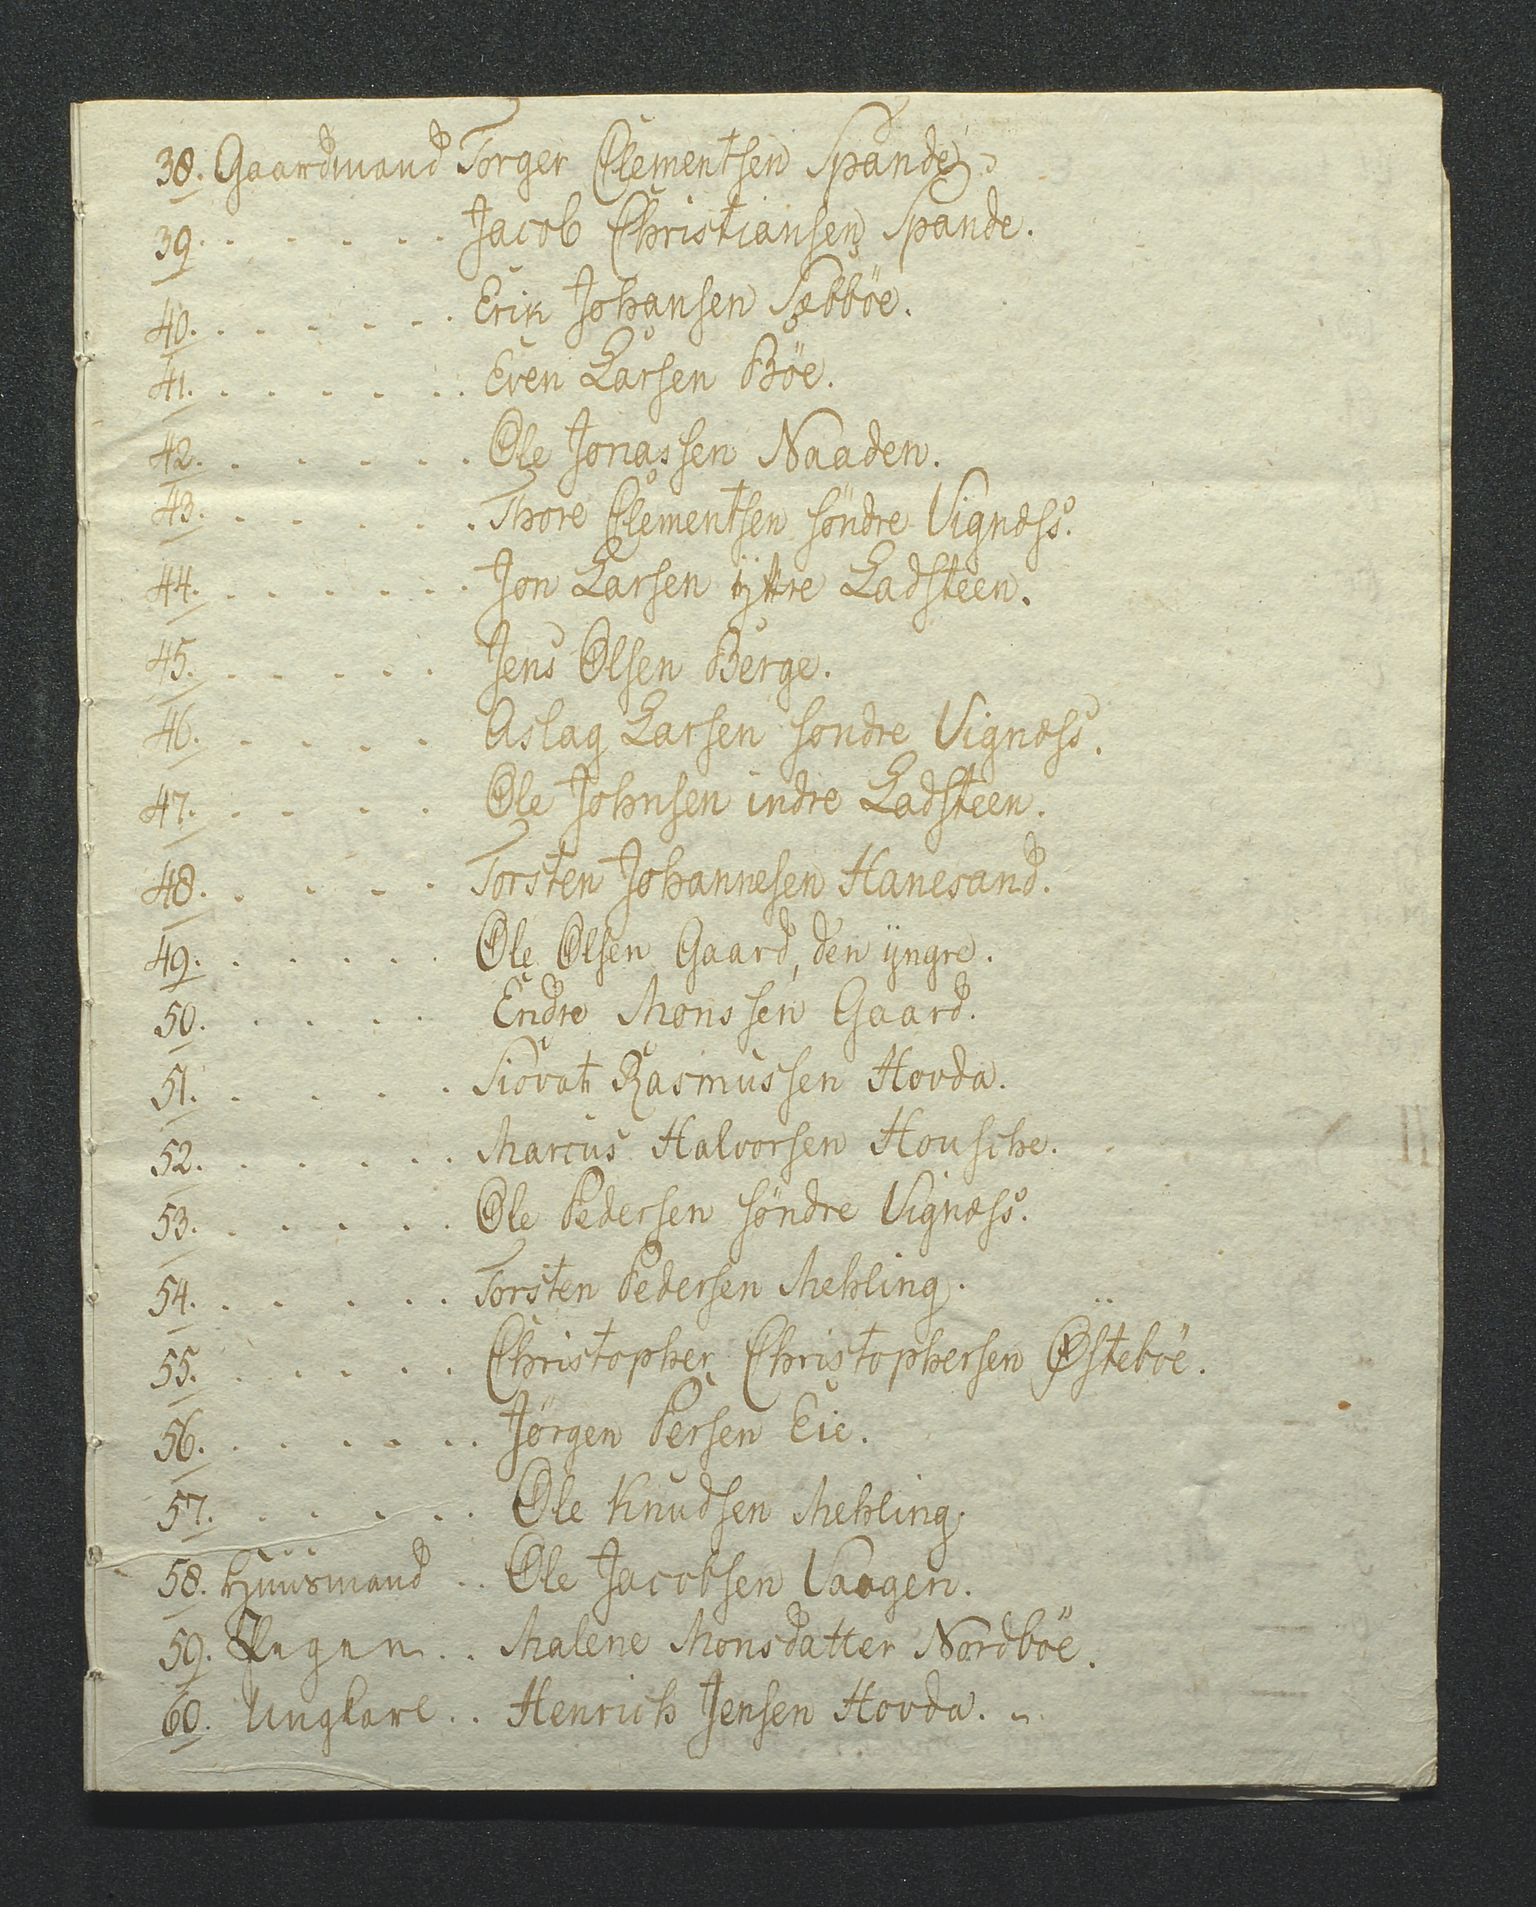 38. Gaardmand Torger Clementsen Spande
39. . . . . . Jacob Christiansen Spande.
40. . . . . . . Erik Johansen Sæbböe.
41. . . . . . . Even Larsen Böe.
42. . . . . . . Ole Jonassen Naaden.
43. . . . . . . Thore Clementsen söndre Vignæss.
44. . . . . . . Jon Larsen ÿttre Ladsteen.
45. . . . . . Jens Olsen Berge.
46. . . . . Aslag Larsen söndre Vignæss.
47. . . . . Ole Johnsen indre Ladsteen.
48. . . . . Torsten Johannesen Hanesand.
49. . . . . . Ole Olsen Gaard, den ÿngre.
50. . . . . Endre Monssen Gaard.
51. . . . . Siovat Rasmussen Hovda.
52. . . . . . Marcus Halvorsen Housche.
53. . . . . . Ole Pedersen söndre Vignæss.
54. . . . . . Torsten Pedersen Mehling.
55. . . . . . Christopher Christophersen Østeböe.
56. . . . . . . Jörgen Persen Eie.
57. . . . . . Ole Knudsen Mehling.
58. Huusmand . . Ole Jacobsen Vaagen.
59. Pegen . . Malene Monsdatter Nordböe.
60. Ungkarl . . Henrich Jensen Hovda.